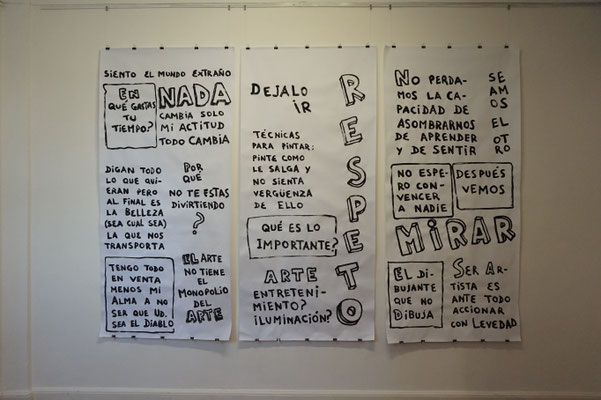 SIENTO EL MUNDO EXTRAÑO
EN
QUÉ GASTAS
TU
TIEMPO?
NADA
CAMBIA SOLO
MI ACTITUD
TODO CAMBIA
DIGAN TODO
LO QUE QUI-
ERAN PERO
AL FINAL ES
LA BELLEZA
(SEA CUAL SEA)
LA QUE NOS
TRANSPORTA
POR
QUÉ
NO TE ESTAS
DIVIRTIENDO
?
TENGO TODO
EN VENTA
MENOS MI
ALMA A NO
SER QUE UD.
SEA EL DIABLO
EL ARTE
NO TIENE
EL
MONOPOLIO
DEL
ARTE
DEJALO
IR
TÉCNICAS
PARA PINTAR:
PINTE COMO
LE SALGA Y
NO SIENTA
VERGÜENZA
DE ELLO
QUÉ ES LO
IMPORTANTE?
ARTE
ENTRETENI-
MIENTO?
ILUMINACIÓN?
RESPETO
NO PERDA-
MOS LA CA-
PACIDAD DE
ASOMBRARNOS
DE APRENDER
Y DE SENTIR
SE
AM
OS
EL
OT
RO
NO ESPE-
RO CON-
VENCER
A NADIE
DESPUÉS
VEMOS
MIRAR
EL DI-
BUJANTE
QUE NO
DIBUJA
SER AR-
TISTA ES
ANTE TODO
ACCIONAR
CON LEVEDAD